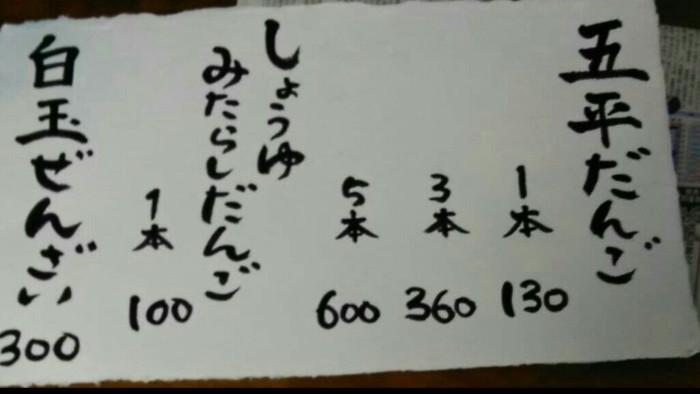 五平だんご
1本 130
3本 360
5本 600
しょうゆ
みたらしだんご
1本 100
白玉ぜんざい
300